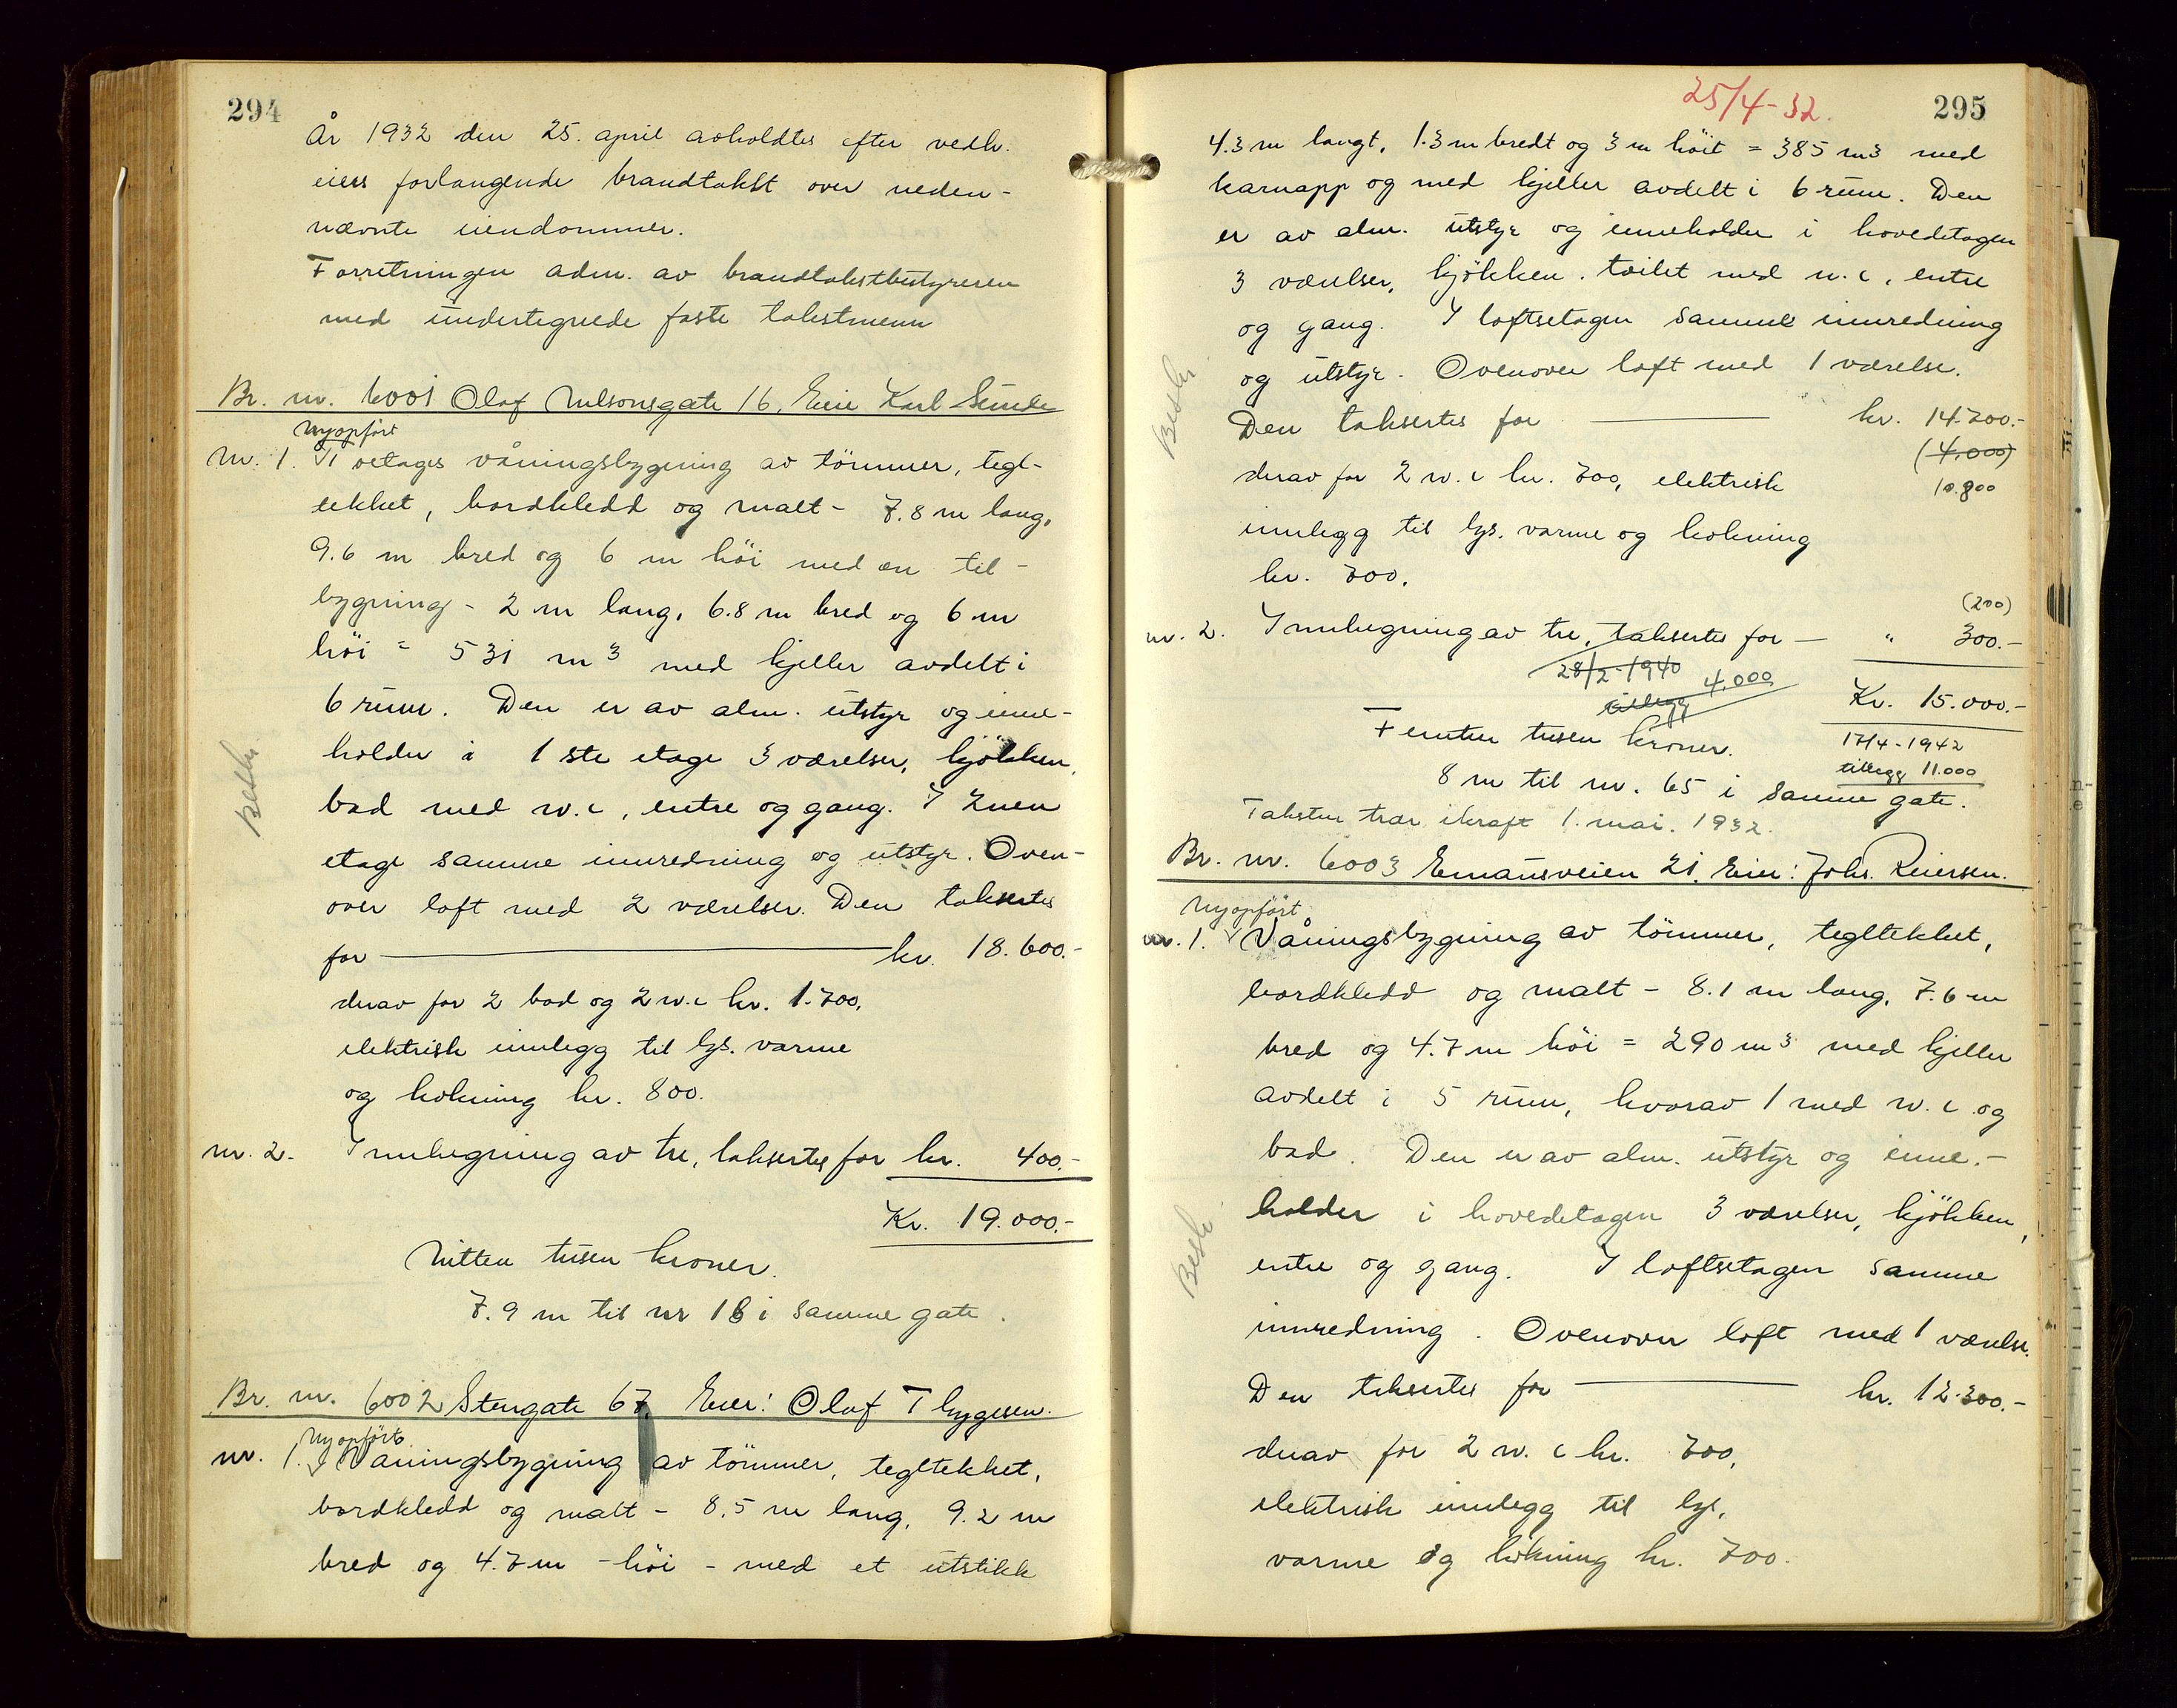 294
År 1932 den 25. april avholdtes efter vedk.
eiers forlangende brandtakst over neden-
nævnte eiendommer.
Forretningen adm. av brandtakstbestyreren
med undertegnede faste takstmenn
Br. nr. 6001 Olaf Nilsonsgate 16. Eier Karl Sunde
Nyopført
nr. 1. 2 etages våningsbygning av tömmer, tegl-
tekket, bordkledd og malt - 7.8 m lang,
9.6 m bred og 6 m höi med en til-
bygning - 2 m lang, 6.8 m bred og 6 m
höi = 531 m3 med kjeller avdelt i
6 rum. Den er av alm. utstyr og inne-
holder i 1ste etage 3 værelser, kjökken,
bad med w.c, entre og gang. I 2nen
etage samme innredning og utstyr. Oven-
over loft med 2 værelser. Den taksertes
for kr. 18.600.-
derav for 2 bad og 2 w.c kr. 1.700,
elektrisk innlegg til lys. varme
og kokning kr. 800.
nr. 2. Innhegning av tre, taksertes for kr. 400.-
Kr. 19.000.-
Nitten tusen kroner.
7.9 m til nr 18 i samme gate.
Br. nr. 6002 Stengate 67. Eier: Olaf Thygesen.
Nyopført
nr. 1. Våningsbygning av tömmer, tegltekket,
bordkledd og malt - 8.5 m lang, 9.2 m
bred og 4.7 m - höi - med et utstikk
25/4-32.
295
4.3 m langt, 1.3 m bredt og 3 m höit = 385 m3 med
karnapp og med kjeller avdelt i 6 rum. Den
er av alm. utstyr og inneholder i hovedetagen
3 værelser, kjökken, toilet med w.c, entre
og gang. I loftsetagen samme innredning
og utstyr. Ovenover loft med 1 værelse.
Den taksertes for kr. 14.700.-
(4,000)
derav for 2 w.c kr. 700, elektrisk
10.800
innlegg til lys. varme og kokning
kr. 700.
(200)
nr. 2. Innhegning av tre, taksertes for - " 300.-
28/2-1940
tillegg 4,000
Kr. 15.000.-
Femten tusen kroner.
17/4-1942
tillegg 11.000
8 m til nr. 65 i samme gate.
Taksten trær ikraft 1. mai. 1932.
Br. nr. 6003 Emausveien 21. Eier: Johs. Reiersen.
Nyopført
nr. 1. Våningsbygning av tömmer, tegltekket,
bordkledd og malt - 8.1 m lang, 7.6 m
bred og 4.7 m höi = 290 m3 med kjeller
avdelt i 5 rum, hvorav 1 med w.c og
bad. Den er av alm. utstyr og inne-
holder i hovedetagen 3 værelser, kjökken,
entre og gang. I loftsetagen samme
innredning. Ovenover loft med 1 værelse.
Den taksertes for kr. 12.300.-
derav for 2 w.c kr. 700,
elektrisk innlegg til lys,
varme og kokning kr. 700.